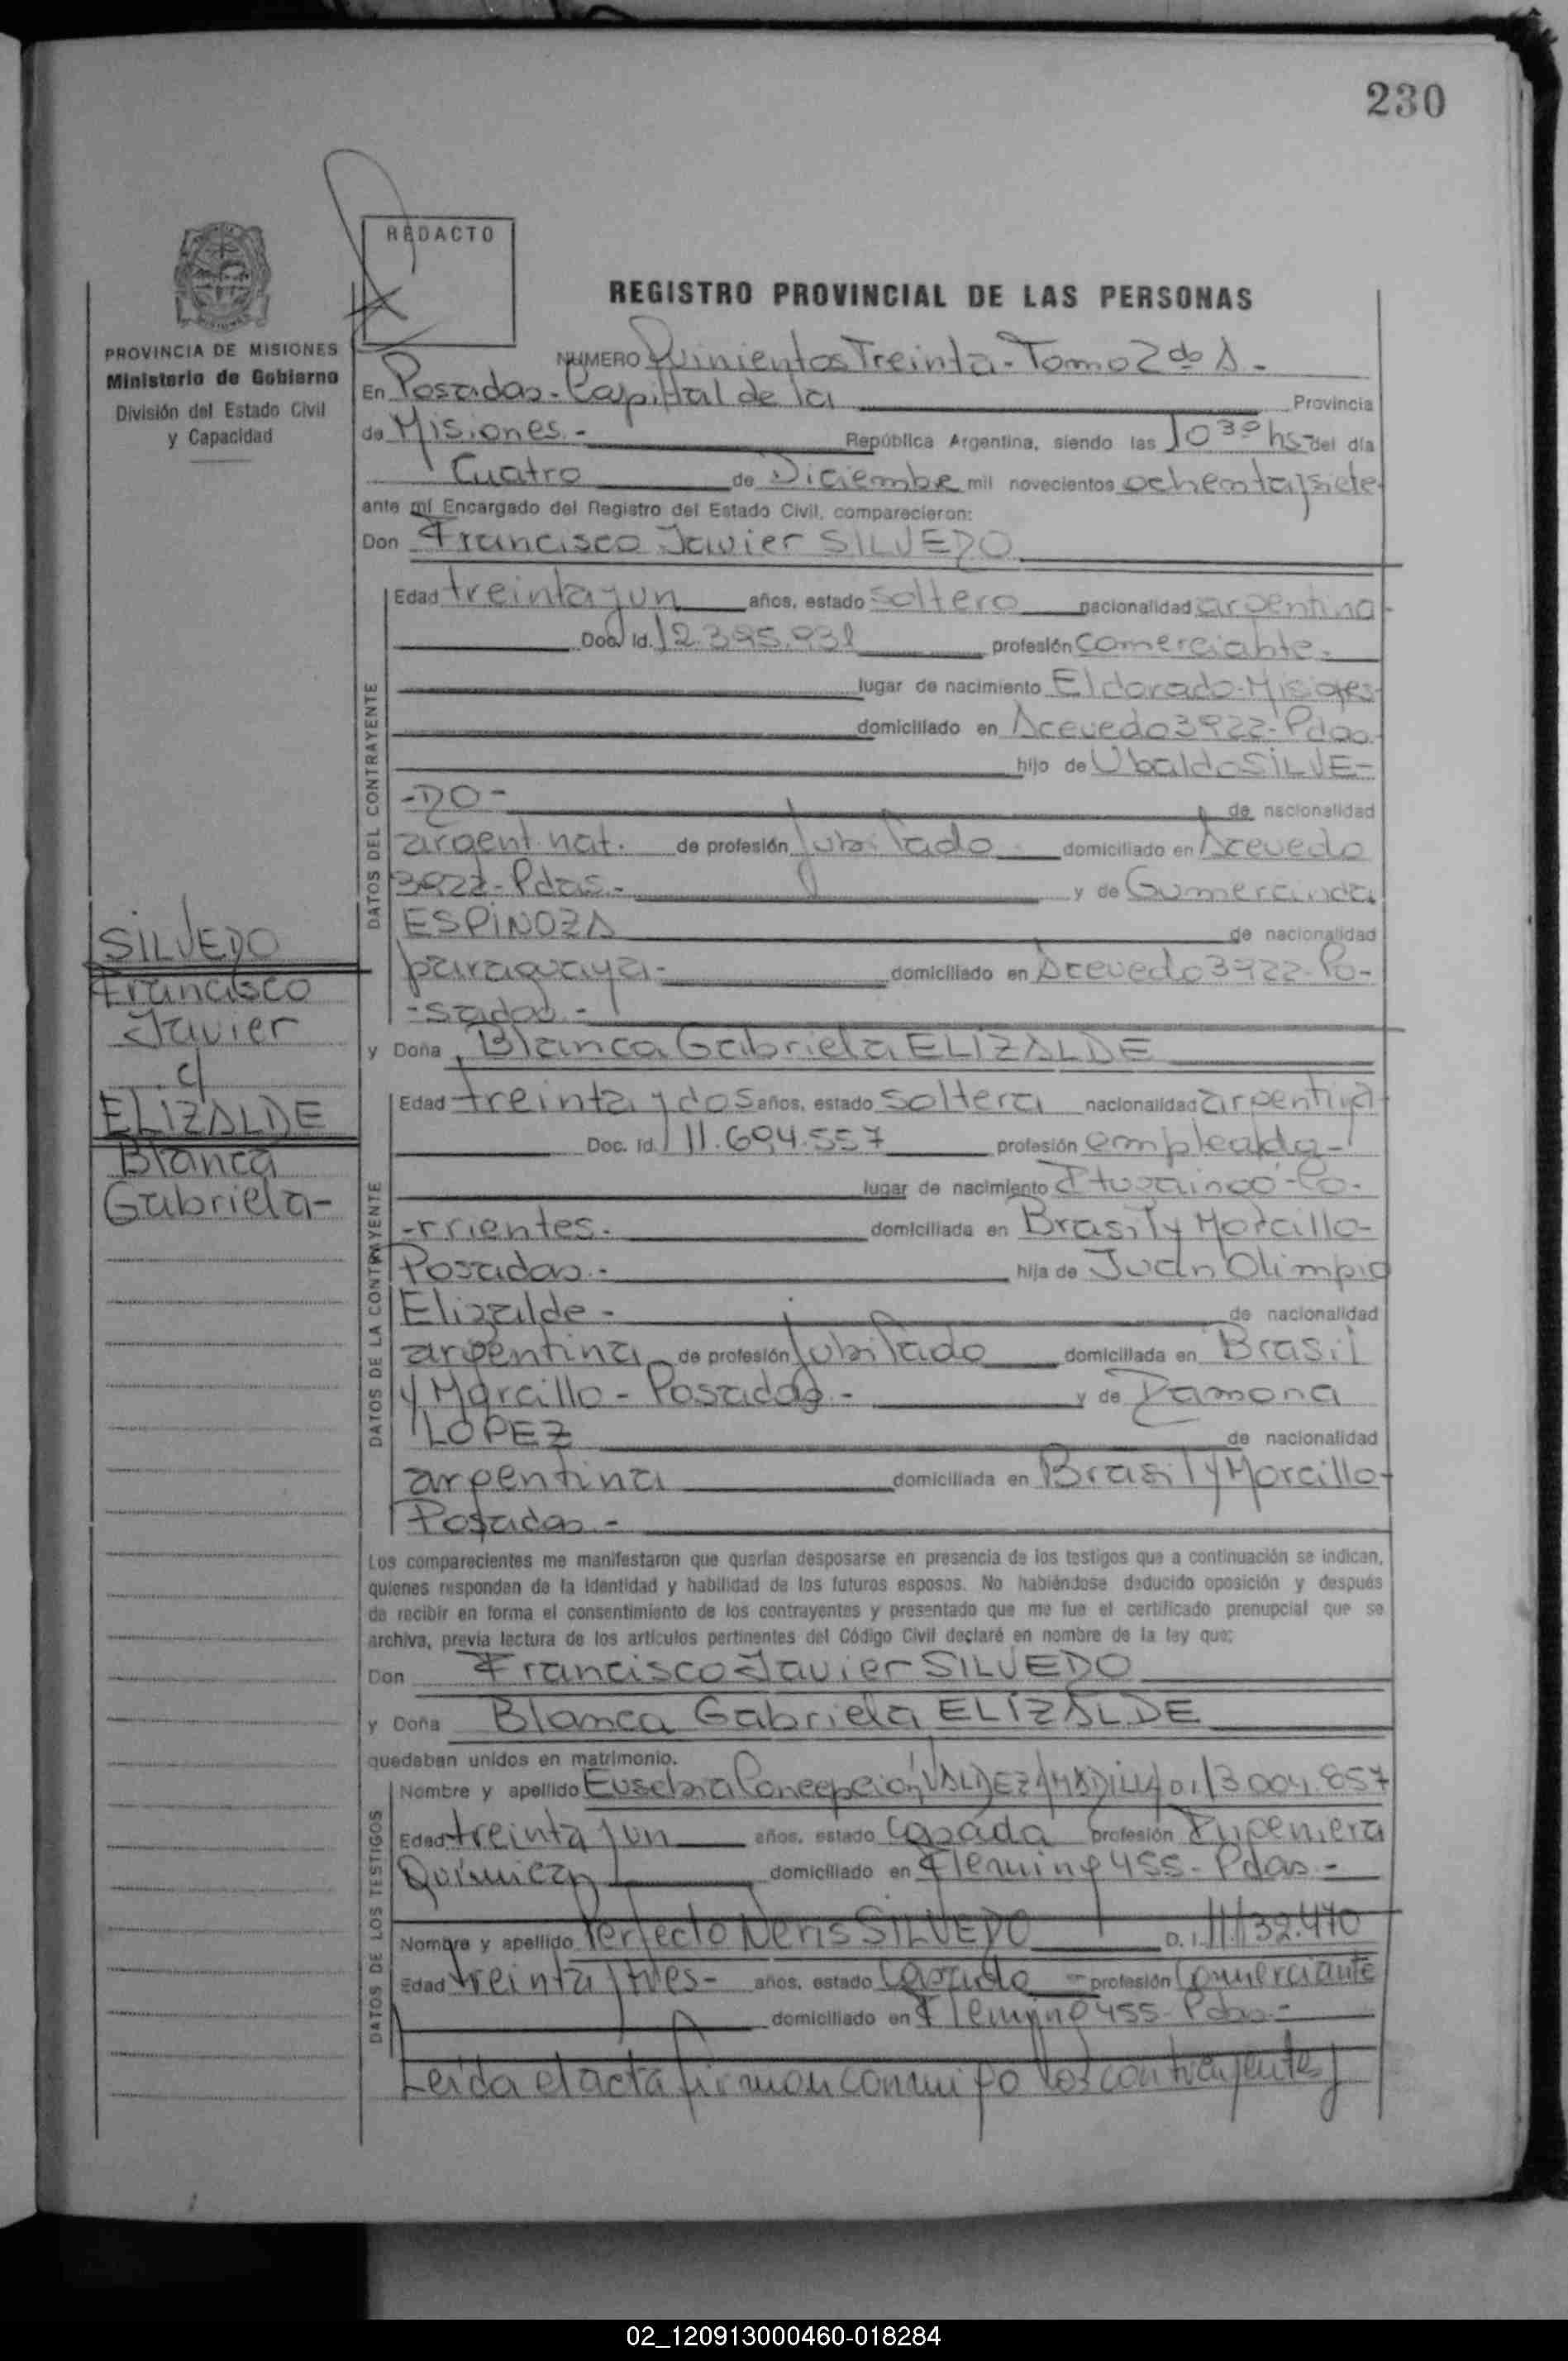 230
REDACTO
REGISTRO PROVINCIAL DE LAS PERSONAS
PROVINCIA DE MISIONES
Ministerio de Gobierno
División del Estado Civil
y Capacidad
NUMERO Quinientos Treinta - Tomo 2do A. -
En Posadas - Capital de la Provincia
de Misiones. - República Argentina, siendo las 10 30 hs - del día
Cuatro de Diciembre mil novecientos ochenta y siete
ante mí Encargado del Registro del Estado Civil, comparecieron:
Don Francisco Javier SILVEDO
DATOS DEL CONTRAYENTE
Edad treinta y un años, estado soltero nacionalidad argentina -
Doc. Id. 12.395.931 profesión comerciante. -
lugar de nacimiento Eldorado - Misiones -
domiciliado en Acevedo 3922 - Pdas.
hijo de Ubaldo SILVE-
-DO - de nacionalidad
argent. nat. de profesión jubilado domiciliado en Acevedo
3922 - Pdas. - y de Gumercinda
ESPINOZA de nacionalidad
paraguaya - domiciliado en Acevedo 3922 - Po-
-sadas -
SILVEDO
Francisco
Javier
c/
ELIZALDE
Blanca
Gabriela -
y Doña Blanca Gabriela ELIZALDE
DATOS DE LA CONTRAYENTE
Edad treinta y dos años, estado soltera nacionalidad argentina
Doc. Id. 11.694.557 profesión empleada -
lugar de nacimiento Ituzaingó - Co-
-rrientes. - domiciliada en Brasil y Morcillo -
Posadas. - hija de Juan Olimpio
Elizalde - de nacionalidad
argentina de profesión jubilado domiciliada en Brasil
y Morcillo - Posadas - y de Ramona
LOPEZ de nacionalidad
argentina domiciliada en Brasil y Morcillo -
Posadas. -
Los comparecientes me manifestaron que querían desposarse en presencia de los testigos que a continuación se indican,
quienes responden de la identidad y habilidad de los futuros esposos. No habiéndose deducido oposición y después
de recibir en forma el consentimiento de los contrayentes y presentado que me fue el certificado prenupcial que se
archiva, previa lectura de los artículos pertinentes del Código Civil declaré en nombre de la ley que:
Don Francisco Javier SILVEDO
y Doña Blanca Gabriela ELIZALDE
quedaban unidos en matrimonio.
DATOS DE LOS TESTIGOS
Nombre y apellido Eusebia Concepción VALDEZ D.I. 13.004.857
Edad treinta y un años, estado casada profesión Ingeniera
Química domiciliado en Fleming 455 - Pdas. -
Nombre y apellido Perfecto Neris SILVEDO D. I. 11.132.470
Edad treinta y tres - años, estado Casado - profesión Comerciante
domiciliado en Fleming 455 - Pdas. -
Leída el acta firman conmigo los contrayentes y
02_120913000460-018284